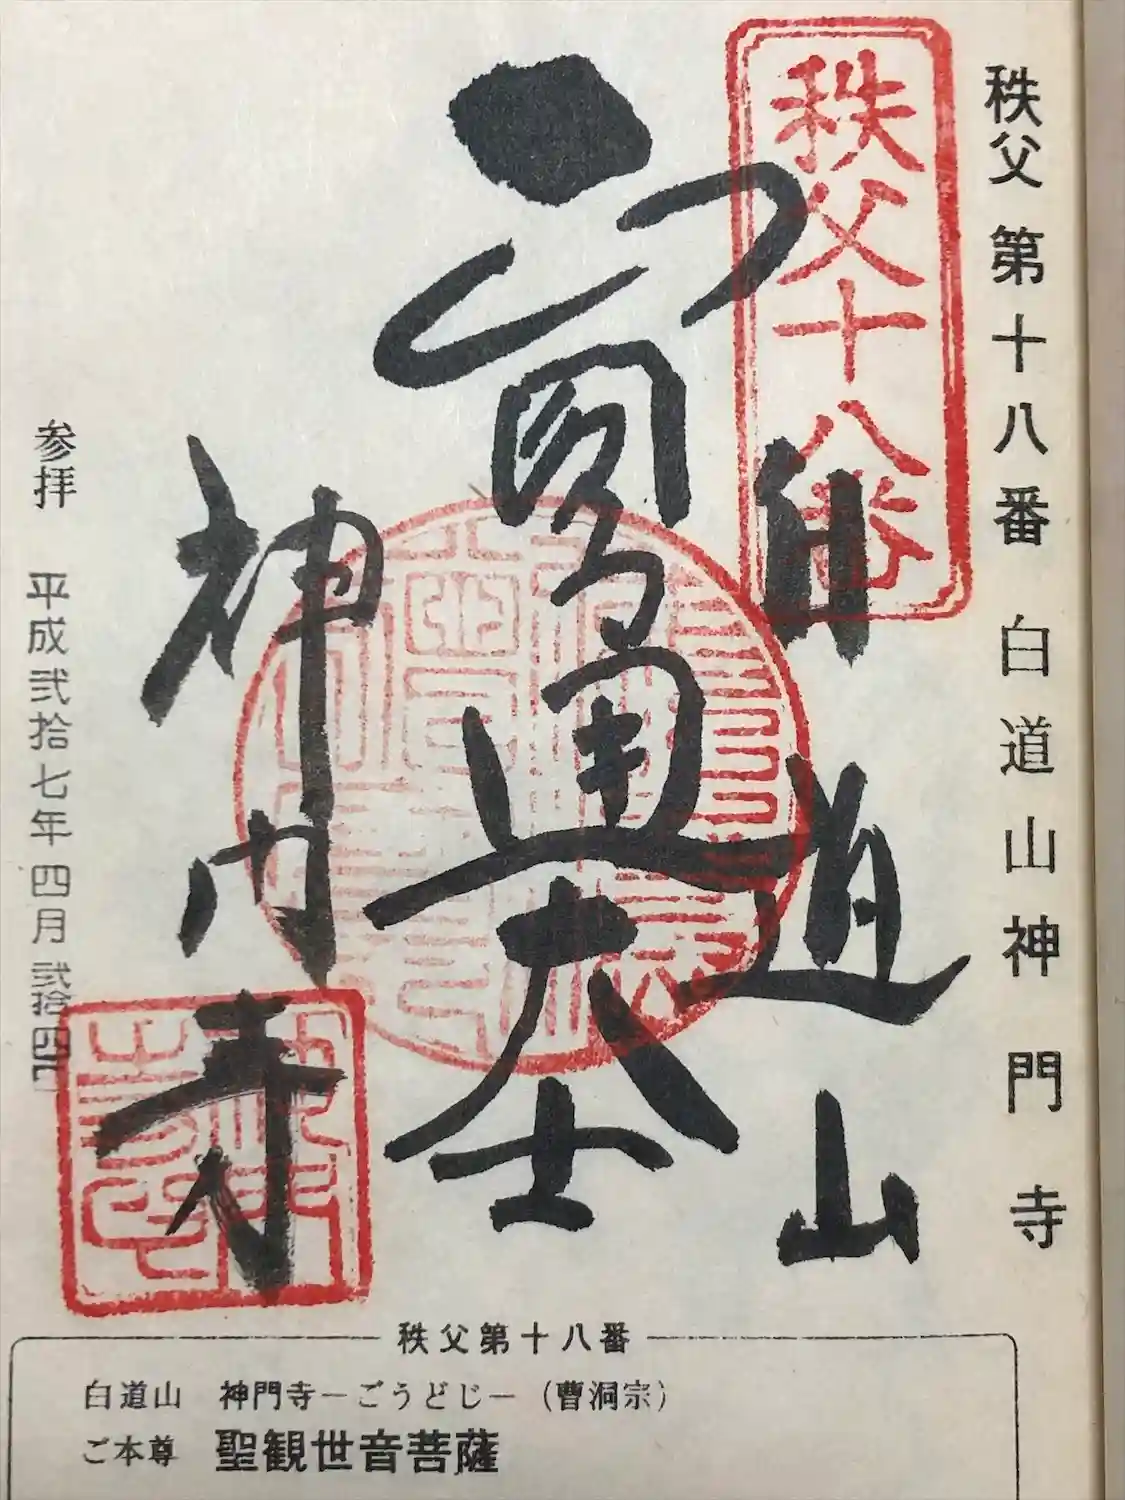 秩父第十八番 白道山神門寺
秩父十八番
白道山
圓通大士
神門寺
参拝 平成弐拾七年四月弐拾四日
秩父第十八番
白道山 神門寺―ごうどじ―(曹洞宗)
ご本尊 聖観世音菩薩